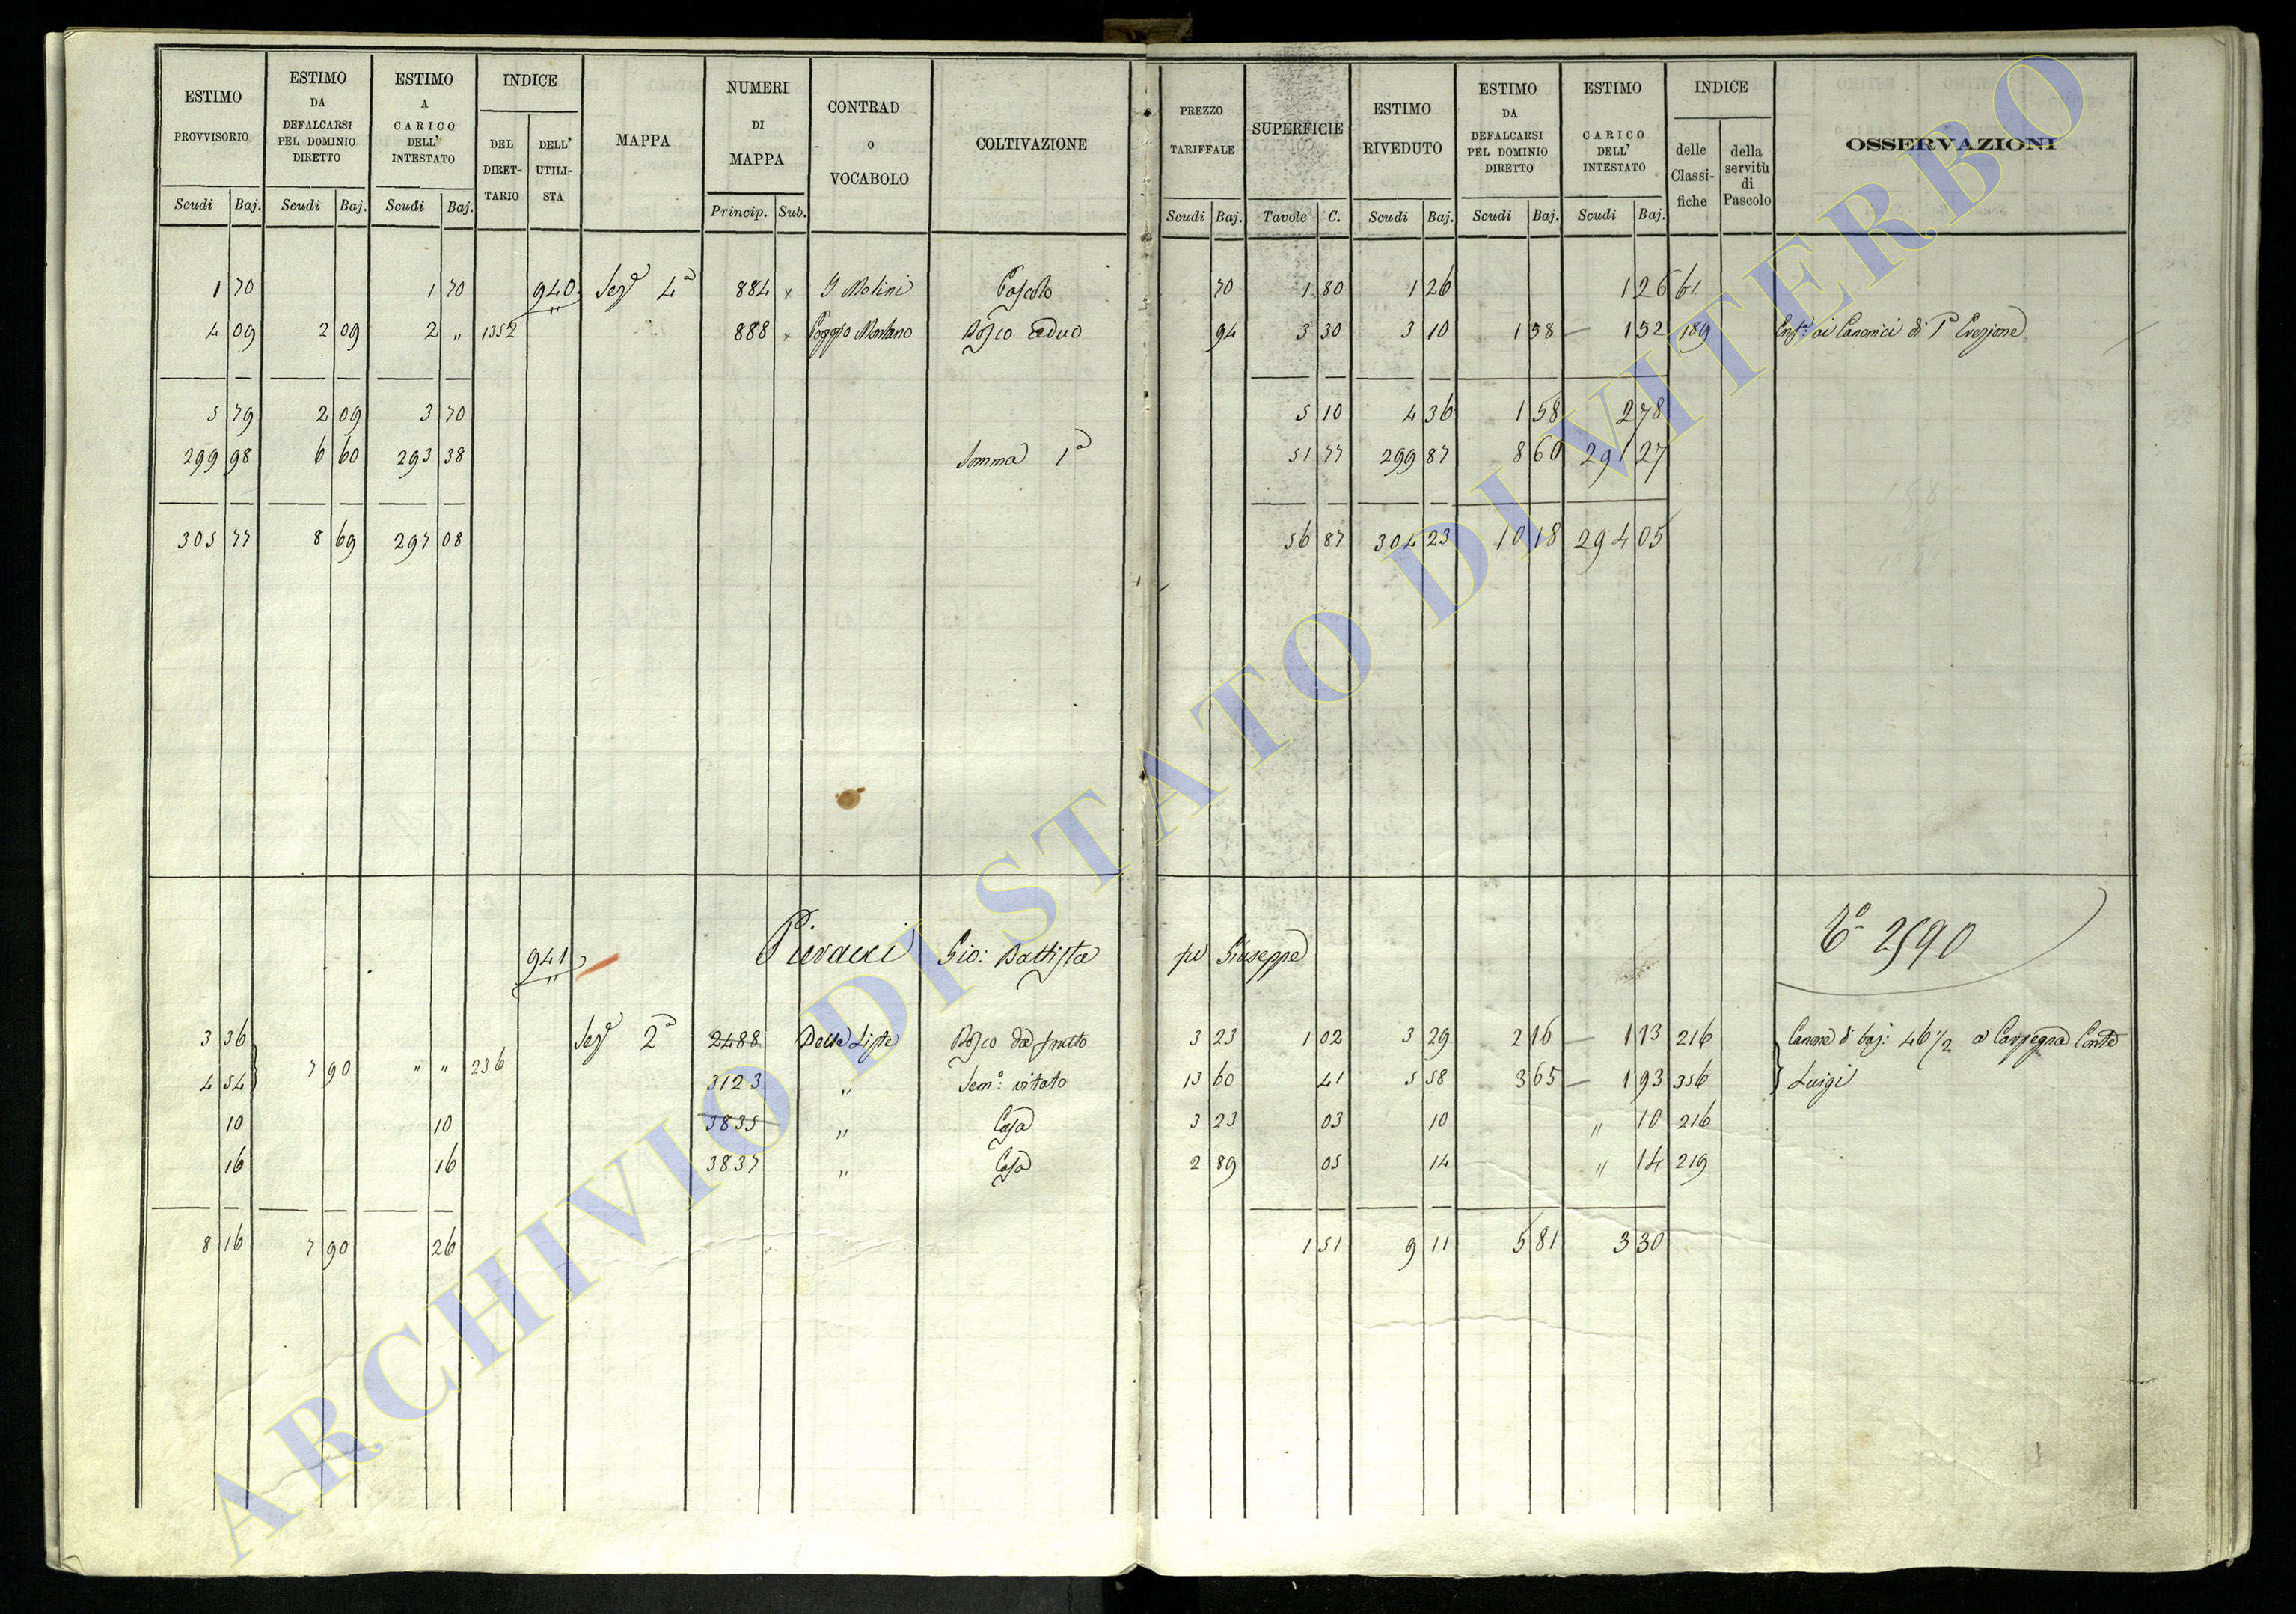 ESTIMO PROVVISORIO | ESTIMO DA DEFALCARSI PEL DOMINIO DIRETTO | ESTIMO A CARICO DELL' INTESTATO | INDICE | MAPPA | NUMERI DI MAPPA | CONTRAD o VOCABOLO | COLTIVAZIONE | PREZZO TARIFFALE | SUPERFICIE | ESTIMO RIVEDUTO | ESTIMO DA DEFALCARSI PEL DOMINIO DIRETTO | ESTIMO CARICO DELL' INTESTATO | INDICE | OSSERVAZIONI
DEL DIRET-TARIO | DELL' UTILI-STA | delle Classi-fiche | della servitù di Pascolo
Scudi | Baj. | Scudi | Baj. | Scudi | Baj. | Princip. | Sub. | Scudi | Baj. | Tavole | C. | Scudi | Baj. | Scudi | Baj. | Scudi | Baj.
1 70 | 1 70 | 940 | Sez.e 4a | 884 x | I Molini | Pascolo | 70 | 1 80 | 1 26 | 1 26 | 61
4 09 | 2 09 | 2 " | 1352 | 888 x | Poggio Montano | Bosco Ceduo | 94 | 3 30 | 3 10 | 1 58 | 1 52 | 189 | Enf.a ai Canonici di 1a Erezione
5 79 | 2 09 | 3 70 | 5 10 | 4 36 | 1 58 | 2 78
299 98 | 6 60 | 293 38 | Somma 1a | 51 77 | 299 87 | 8 60 | 291 27
305 77 | 8 69 | 297 08 | 56 87 | 304 23 | 10 18 | 294 05
941 | Pieracci Gio: Battista fu Giuseppe | 2590
3 36 | Sez.e 2a | 2488 | Delle Liste | Bosco da frutto | 3 23 | 1 02 | 3 29 | 2 16 | 1 13 | 216 | Canone di baj: 46 1/2 a Carpegna Conte
4 54 | 7 90 | " " | 236 | 3123 | " | Sem.o vitato | 13 60 | 41 | 5 58 | 3 65 | 1 93 | 356 | Luigi
10 | 10 | 3835 | " | Casa | 3 23 | 03 | 10 | " 10 | 216
16 | 16 | 3837 | " | Casa | 2 89 | 05 | 14 | " 14 | 219
8 16 | 7 90 | 26 | 1 51 | 9 11 | 5 81 | 3 30
ARCHIVIO DI STATO DI VITERBO